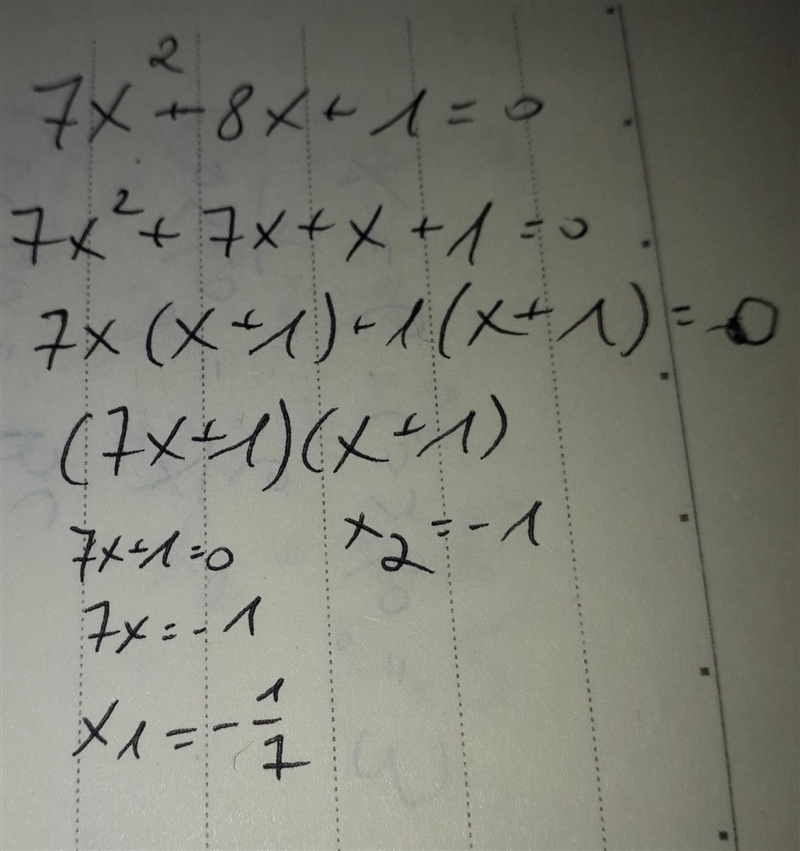 7x² + 8x + 1 = 0
7x² + 7x + x + 1 = 0
7x (x + 1) + 1 (x + 1) = 0
(7x + 1) (x + 1)
7x + 1 = 0 x₂ = - 1
7x = - 1
x₁ = - 1/7